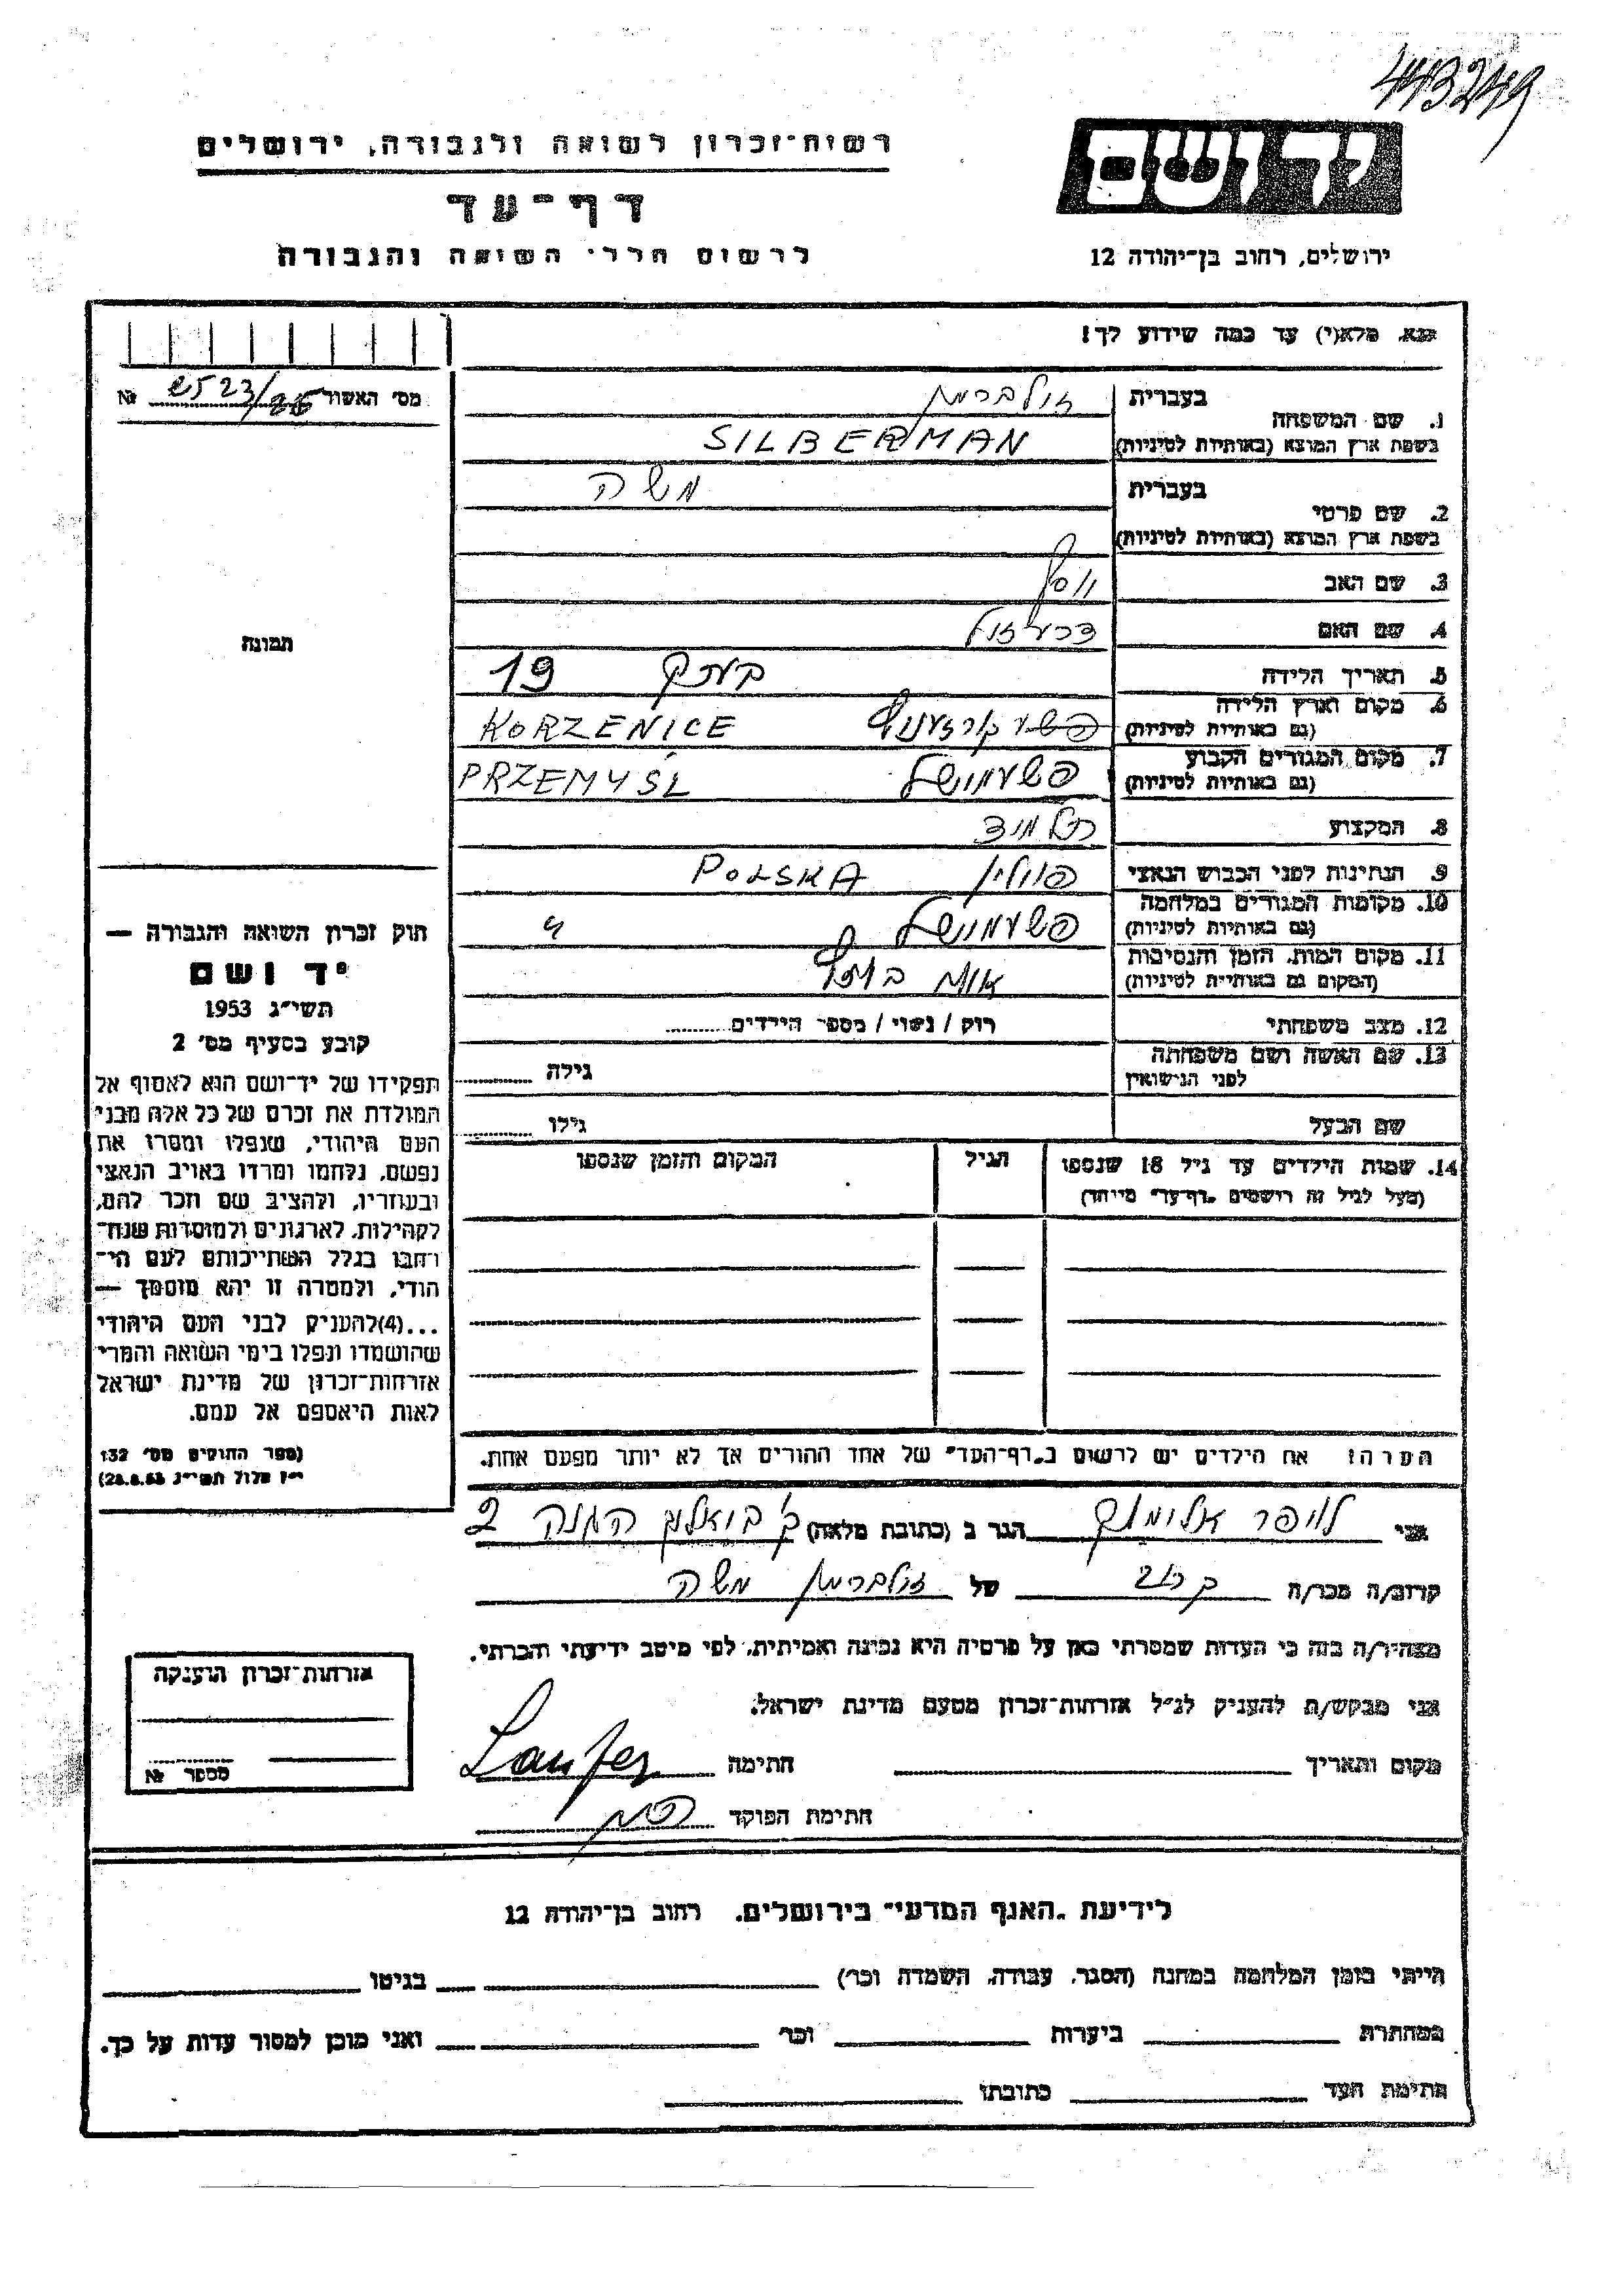 443249
רשות-זכרון לשואה ולגבורה, ירושלים
יד ושם
דף-עד
לרשום חללי השואה והגבורה
ירושלים, רחוב בן-יהודה 12
נא מלא(י) עד כמה שידוע לך!
מס' האשור №
1. שם המשפחה
בעברית זילברמן
בשפת ארץ המוצא (באותיות לטיניות) SILBERMAN
2. שם פרטי
בעברית משה
בשפת ארץ המוצא (באותיות לטיניות)
3. שם האב יוסף
4. שם האם
5. תאריך הלידה 19
6. מקום וארץ הלידה
(גם באותיות לטיניות) KORZENICE
7. מקום המגורים הקבוע פשעמישל PRZEMYŚL
(גם באותיות לטיניות)
8. המקצוע תלמיד
9. הנתינות לפני הכבוש הנאצי פולין POLSKA
10. מקומות המגורים במלחמה פשעמישל
(גם באותיות לטיניות)
11. מקום המות, הזמן והנסיבות
(המקום גם באותיות לטיניות)
12. מצב משפחתי רוק / נשוי / מספר הילדים
13. שם האשה ושם משפחתה
לפני הנישואין גילה
שם הבעל גילו
14. שמות הילדים עד גיל 18 שנספו הגיל המקום והזמן שנספו
(מעל לגיל זה רושמים "דף-עד" מיוחד)
הערה: את הילדים יש לרשום ב"דף-העד" של אחד ההורים אך לא יותר מפעם אחת.
תמונה
חוק זכרון השואה והגבורה —
יד ושם
תשי"ג 1953
קובע בסעיף מס' 2
תפקידו של יד-ושם הוא לאסוף אל
המולדת את זכרם של כל אלה מבני
העם היהודי, שנפלו ומסרו את
נפשם, נלחמו ומרדו באויב הנאצי
ובעוזריו, ולהציב שם וזכר להם,
לקהילות, לארגונים ולמוסדות שנח-
רחבו בגלל השתייכותם לעם הי-
הודי, ולמטרה זו יהא מוסמך —
...(4)להעניק לבני העם היהודי
שהושמדו ונפלו בימי השואה והמרי
אזרחות-זכרון של מדינת ישראל
לאות היאספם אל עמם.
(ספר החוקים מס' 132
י"ז אלול תשי"ג 28.8.53)
אני לויפר אלימלך הגר ב (כתובת מלאה) ההגנה 2
קרוב/ה מכר/ה של זילברמן משה
מצהיר/ה בזה כי העדות שמסרתי כאן על פרטיה היא נכונה ואמיתית, לפי מיטב ידיעתי והכרתי.
אני מבקש/ת להעניק לנ"ל אזרחות-זכרון מטעם מדינת ישראל.
מקום ותאריך חתימה Laufer
חתימת הפוקד
אזרחות-זכרון הוענקה
מספר №
לידיעת "האגף המדעי" בירושלים, רחוב בן-יהודה 12
הייתי בזמן המלחמה במחנה (הסגר, עבודה, השמדה וכו') בגיטו
במחתרת ביערות וכו' ואני מוכן למסור עדות על כך.
חתימת העד כתובתו